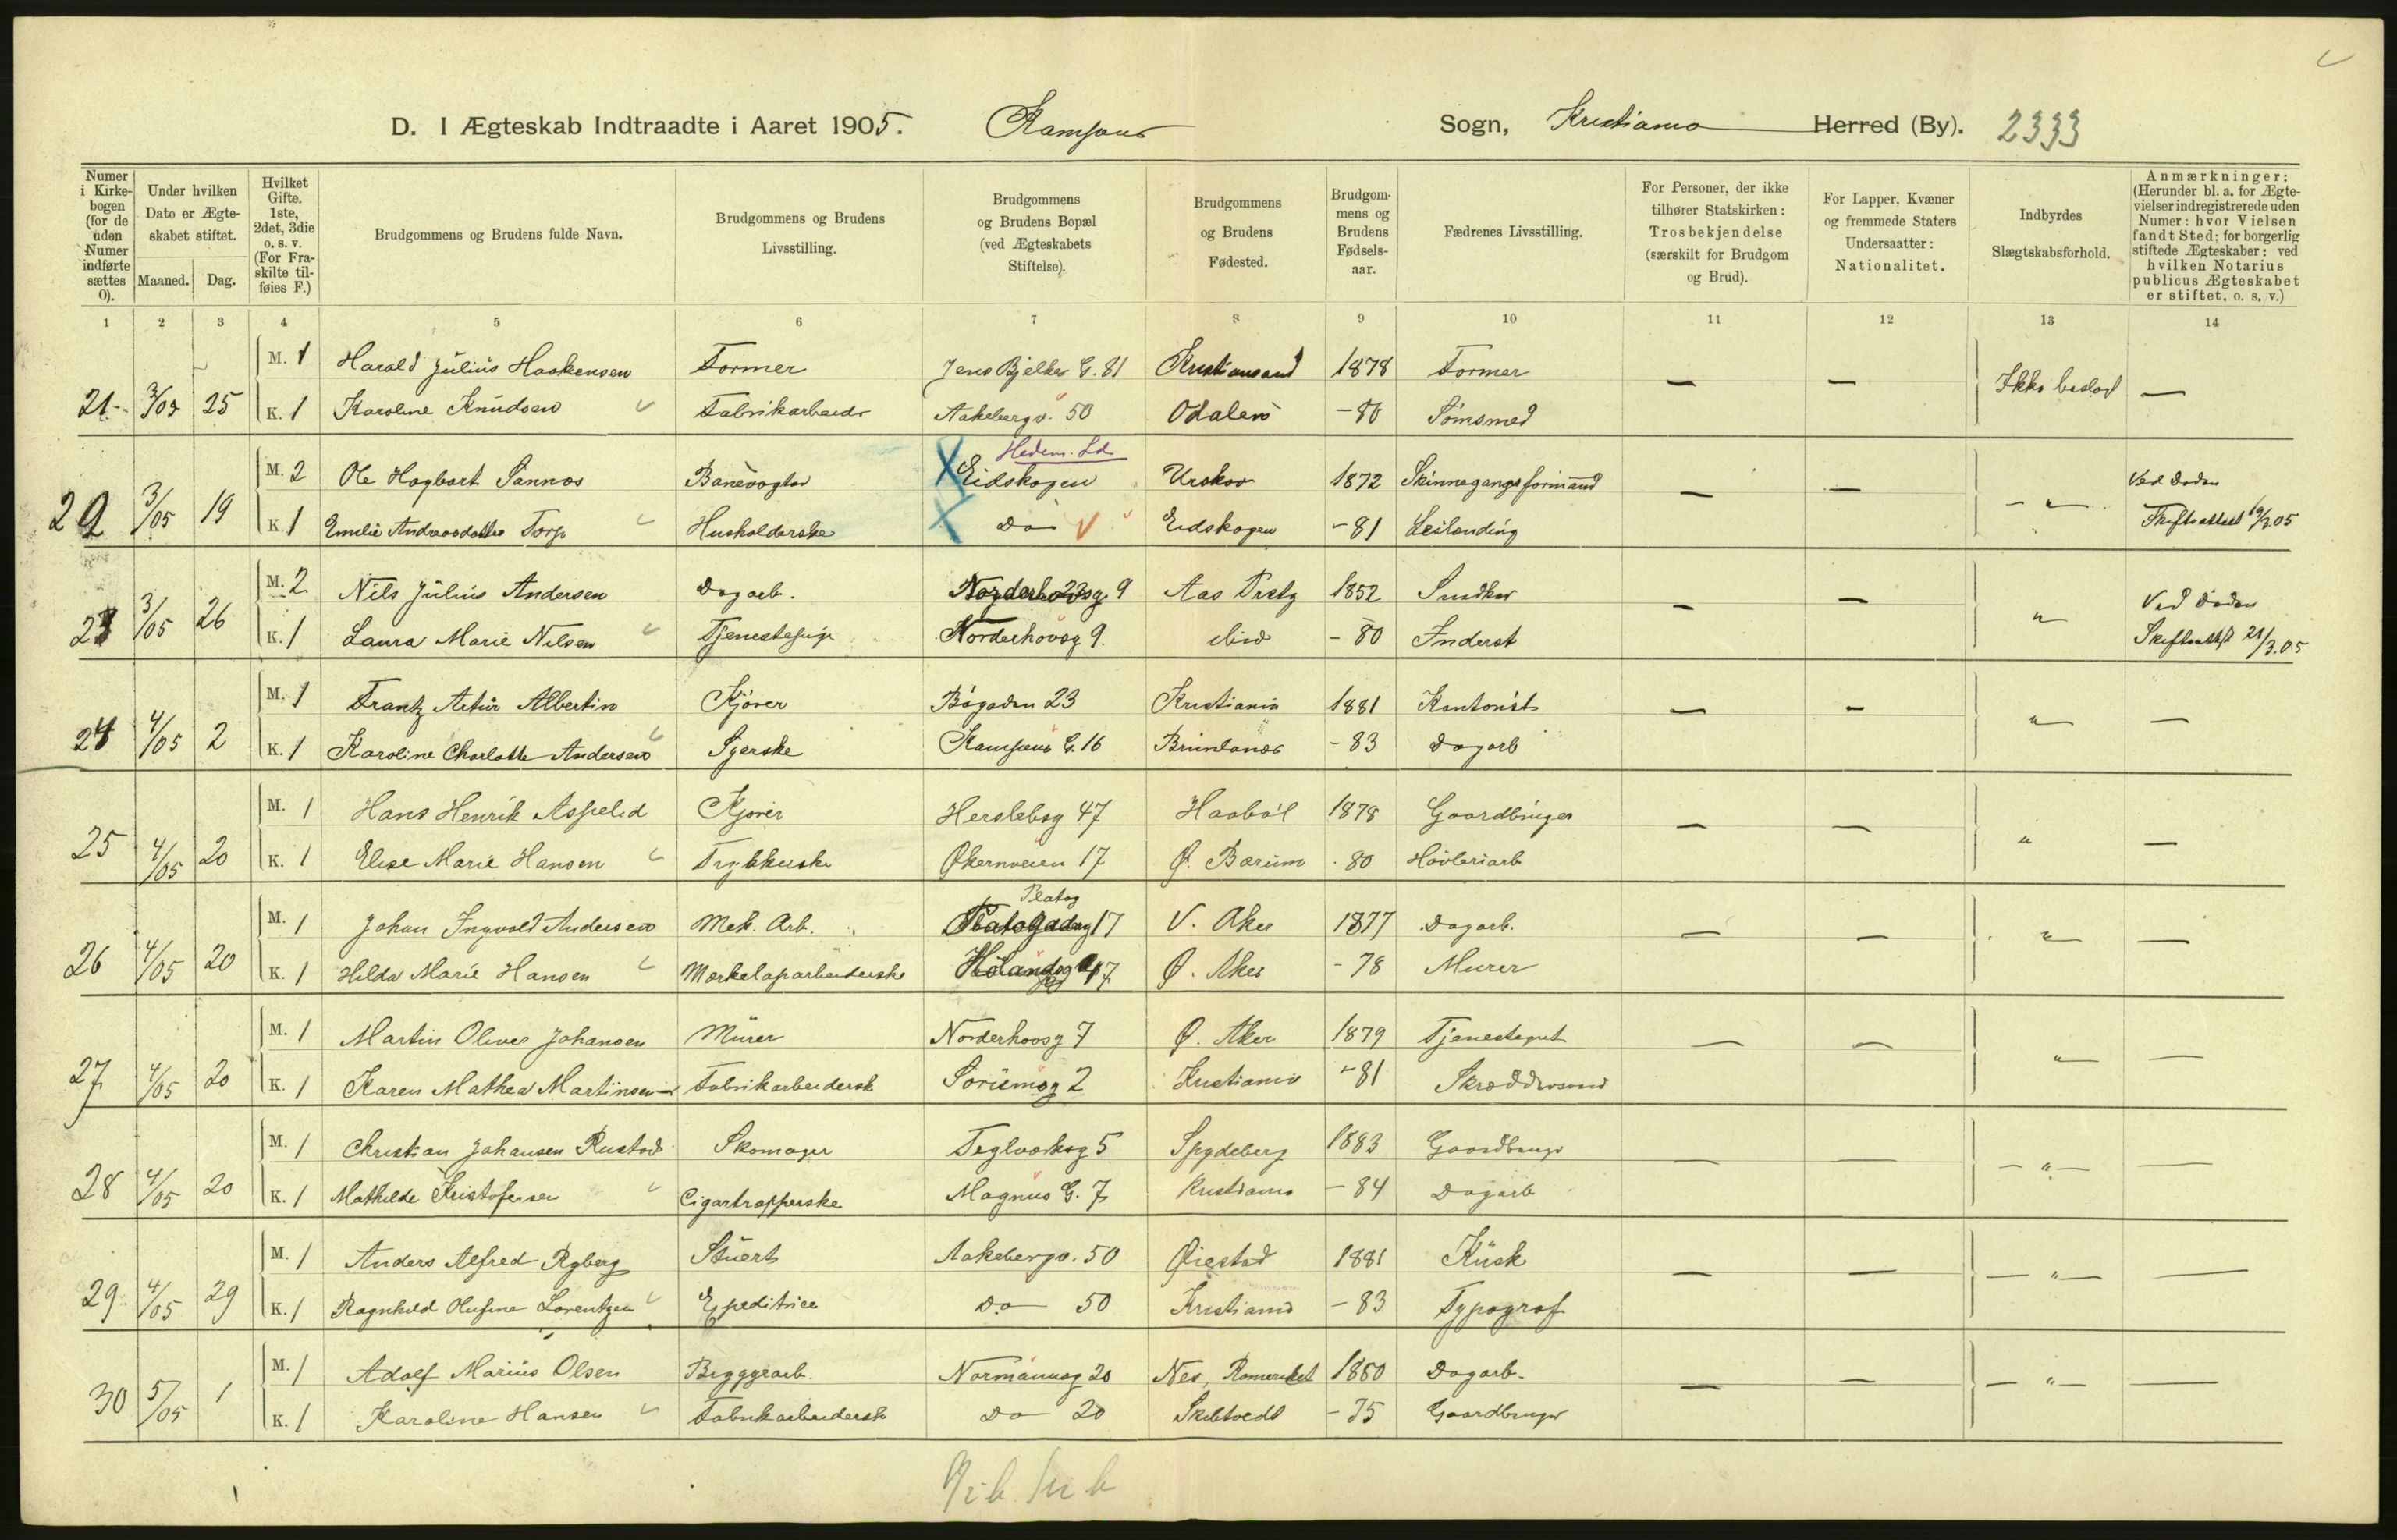 D. I Ægteskab Indtraadte i Aaret 1905. Kampens Sogn, Kristiania Herred (By). 2333
Numer i Kirkebogen (for de uden Numer indførte sættes 0).
Under hvilken Dato er Ægteskabet stiftet.
Maaned. Dag.
Hvilket Gifte. 1ste, 2det, 3die o. s. v. (For Fraskilte tilføies F.)
Brudgommens og Brudens fulde Navn.
Brudgommens og Brudens Livsstilling.
Brudgommens og Brudens Bopæl (ved Ægteskabets Stiftelse).
Brudgommens og Brudens Fødested.
Brudgommens og Brudens Fødselsaar.
Fædrenes Livsstilling.
For Personer, der ikke tilhører Statskirken: Trosbekjendelse (særskilt for Brudgom og Brud).
For Lapper, Kvæner og fremmede Staters Undersaatter: Nationalitet.
Indbyrdes Slægtskabsforhold.
Anmærkninger: (Herunder bl. a. for Ægtevielser indregistrerede uden Numer: hvor Vielsen fandt Sted; for borgerlig stiftede Ægteskaber: ved hvilken Notarius publicus Ægteskabet er stiftet, o. s. v.)
1 2 3 4 5 6 7 8 9 10 11 12 13 14
M. 1 Harald Julius Haakensen Former Jens Bjelkes G. 81 Kristiansand 1878 Former — —
21 3/05 25 K. 1 Karoline Knudsen Fabrikarbeid. Aakebergv. 50 Odalen -80 Sømsmed Ikke beslægt —
Hedem. Ld.
M. 2 Ole Hagbart Sannes Banevogter Eidskogen Urskov 1872 Skinnegangsformand — — Ved Døden
22 3/05 19 K 1 Emilie Andreasdatter Torp Husholderske Do Eidskogen -81 Leilænding - " - Skifteattest 19/3 05
M. 2 Nils Julius Andersen Dagarb. Norderhovsg 9 Aas Prstg 1852 Snedker — — Ved Døden
23 3/05 26 K. 1 Laura Marie Nilsen Tjenestepige Norderhovsg 9. ibid -80 Inderst " Skifteattest 21/3.05
M. 1 Frantz Artur Albertin Kjører Bøgaden 23 Kristiania 1881 Kontorist — —
24 4/05 2 K. 1 Karoline Charlotte Andersen Syerske Kampens G. 16 Brunlanes -83 Dagarb " —
M. 1 Hans Henrik Aspelid Kjører Herslebsg 47 Haabøl 1878 Gaardbruger — —
25 4/05 20 K. 1 Elise Marie Hansen Trykkerske Økernveien 17 Ø. Bærum -80 Høvleriarb " —
Platog
M. 1 Johan Ingvald Andersen Mek. Arb. 17 V. Aker 1877 Dagarb. — —
26 4/05 20 K. 1 Hilda Marie Hansen 17 Ø. Aker -78 Murer " —
M. 1 Martin Oliver Johansen Murer Norderhovsg 7 Ø. Aker 1879 Tjenestegut — —
27 4/05 20 K. 1 Karen Mathea Martinsen Fabrikarbeidersk Sørumsg 2 Kristiania -81 Skræddersvend " —
M. 1 Christian Johansen Rustad Skomager Teglverksg 5 Spydeberg 1883 Gaardbruger — —
28 4/05 20 K. 1 Mathilde Kristofersen Cigartrapperske Magnus G. 7 Kristiania -84 Dagarb - " - —
M. 1 Anders Alfred Ryberg Stuert Aakebergv. 50 Øiestad 1881 Kusk — —
29 4/05 29 K. 1 Ragnhild Olufine Lorentzen Expeditrice Do 50 Kristiania -83 Typograf - " - —
M. 1 Adolf Marius Olsen Bryggearb. Normannsg 20 Nes, Romeriket 1880 Dagarb. — —
30 5/05 1 K. 1 Karoline Hansen Fabrikarbeidersk Do 20 Skibtvedt -75 Gaardbruger - " - —